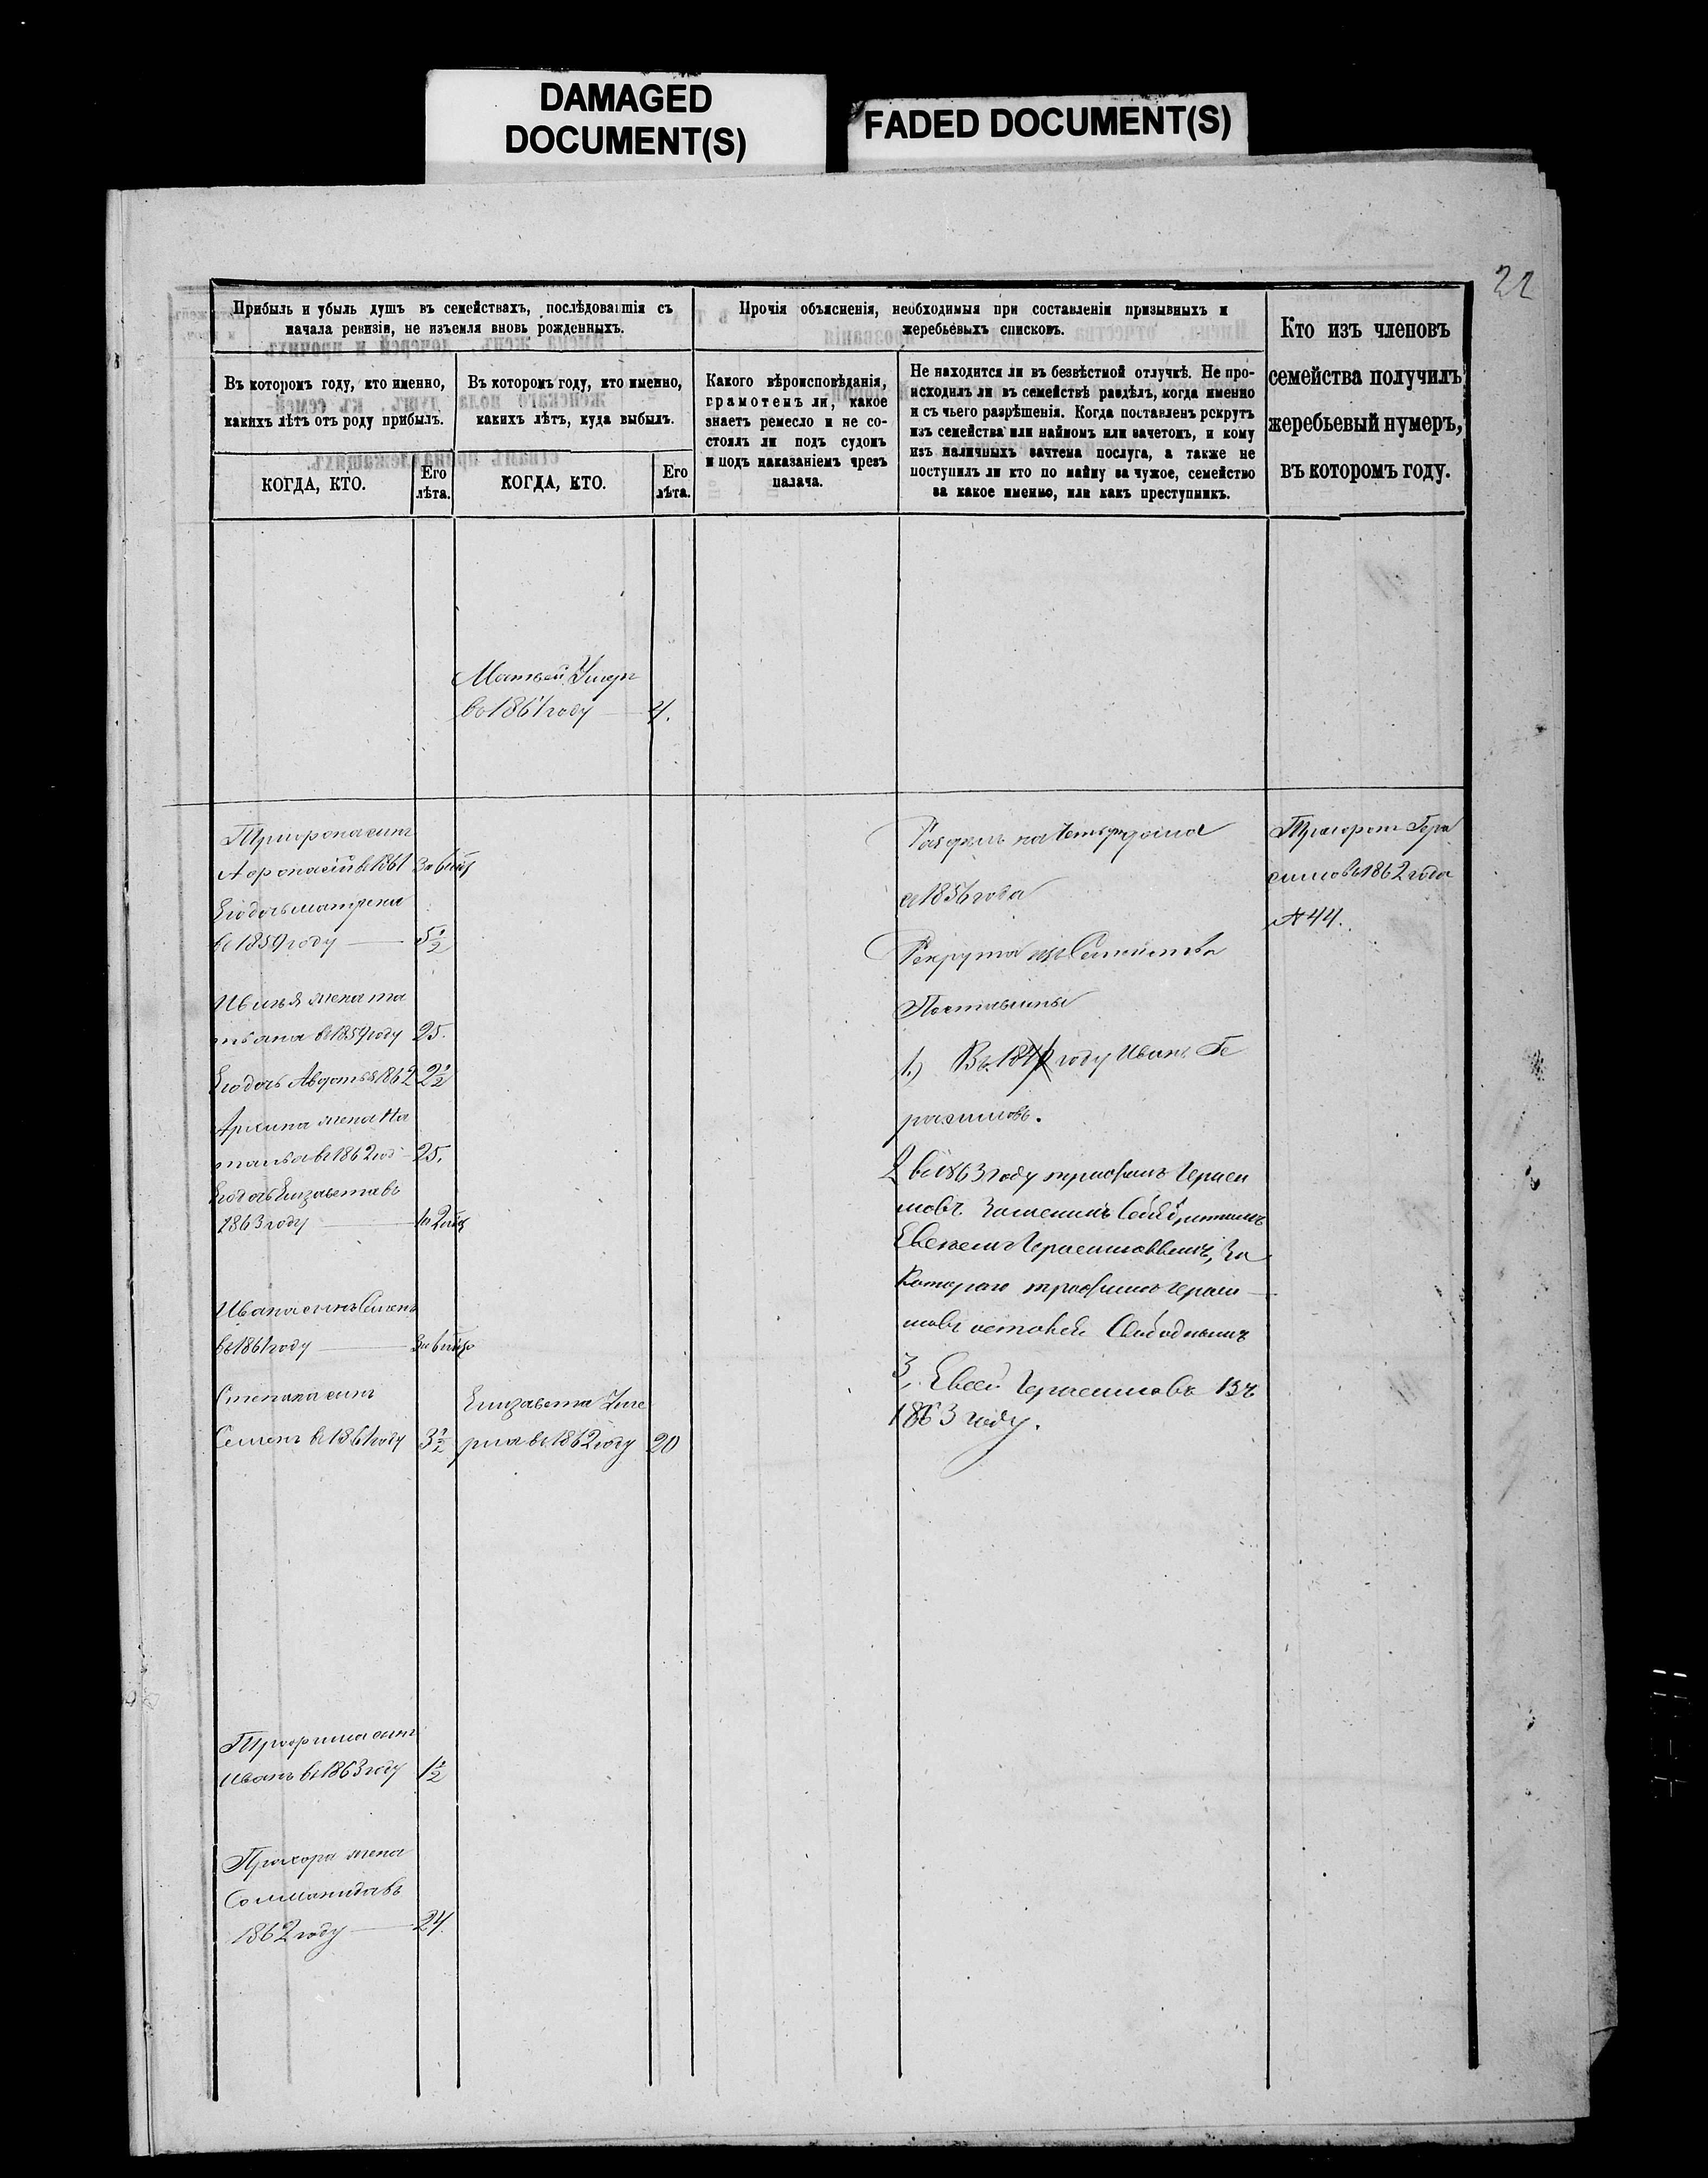 DAMAGED
DOCUMENT(S)
FADED DOCUMENT(S)
22
Прибыль и убыль душъ въ семействахъ, послѣдовавшія съ
начала ревизіи, не изъемля вновь рожденныхъ.
Прочія объясненія, необходимыя при составленіи призывныхъ и
жеребьевыхъ списковъ.
Кто изъ членовъ
семейства получилъ
жеребьевый нумеръ,
въ которомъ году.
Въ которомъ году, кто именно,
какихъ лѣтъ отъ роду прибылъ.
Въ которомъ году, кто именно,
какихъ лѣтъ, куда выбылъ.
Какого вѣроисповѣданія,
грамотенъ ли, какое
знаетъ ремесло и не со-
стоялъ ли подъ судомъ
и подъ наказаніемъ чрезъ
палача.
Не находится ли въ безвѣстной отлучкѣ. Не про-
исходилъ ли въ семействѣ раздѣлъ, когда именно
и съ чьего разрѣшенія. Когда поставленъ рекрутъ
изъ семейства или наймомъ или зачетомъ, и кому
изъ наличныхъ зачтена послуга, а также не
поступилъ ли кто по найму за чужое, семейство
за какое именно, или какъ преступникъ.
КОГДА, КТО.
Его
лѣта.
КОГДА, КТО.
Его
лѣта.
Матвей Умеръ
въ 1861 году 4.
сынъ
въ 1861
Егодочь матрена
въ 1859 году 5½
жена та
тьяна въ 1859 году 25.
Егодочь Авдотья 1862 2½
Архипа жена На
талья въ 1862 год 25.
Егодочь Елизавета въ
1863 году
Ивана сынъ Семенъ
въ 1861 году
Степана сынъ
Семенъ въ 1861 году 3½
Елизавета Уме
рла въ 1862 году 20
Трофима сынъ
Иванъ въ 1863 году 1½
Прохора жена
Соломонида въ
1862 году 24.
на
съ 1856 года
Рекрута изъ Семейства
Поставлены
1.) Въ году Иванъ Ге
расимовъ.
2 въ 1863 году трофимъ Гераси
мовъ
Герасимовымъ, За
Котораго трофимъ Гераси
мовъ Свободнымъ
3, Евсей Герасимовъ въ
1863 году.
Гера
симовъ 1862 года
№ 44.